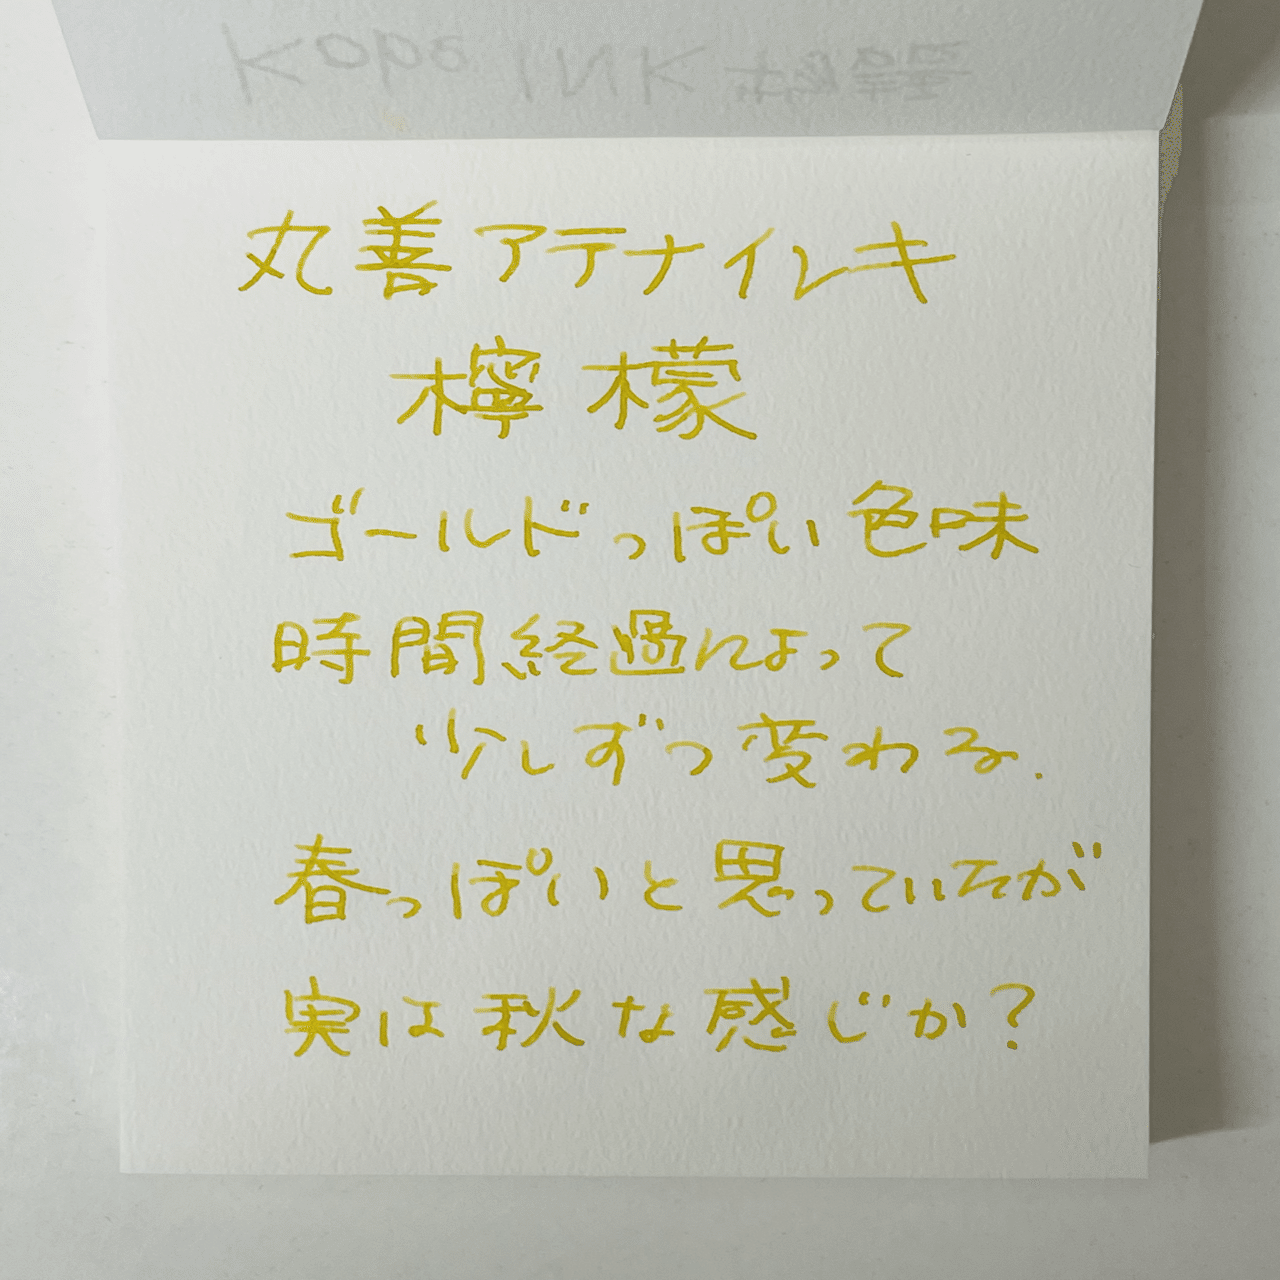 Kobe INK
丸善アテナインキ
檸檬
ゴールドっぽい色味
時間経過によって
少しずつ変わる.
春っぽいと思っていたが
実は秋な感じか?